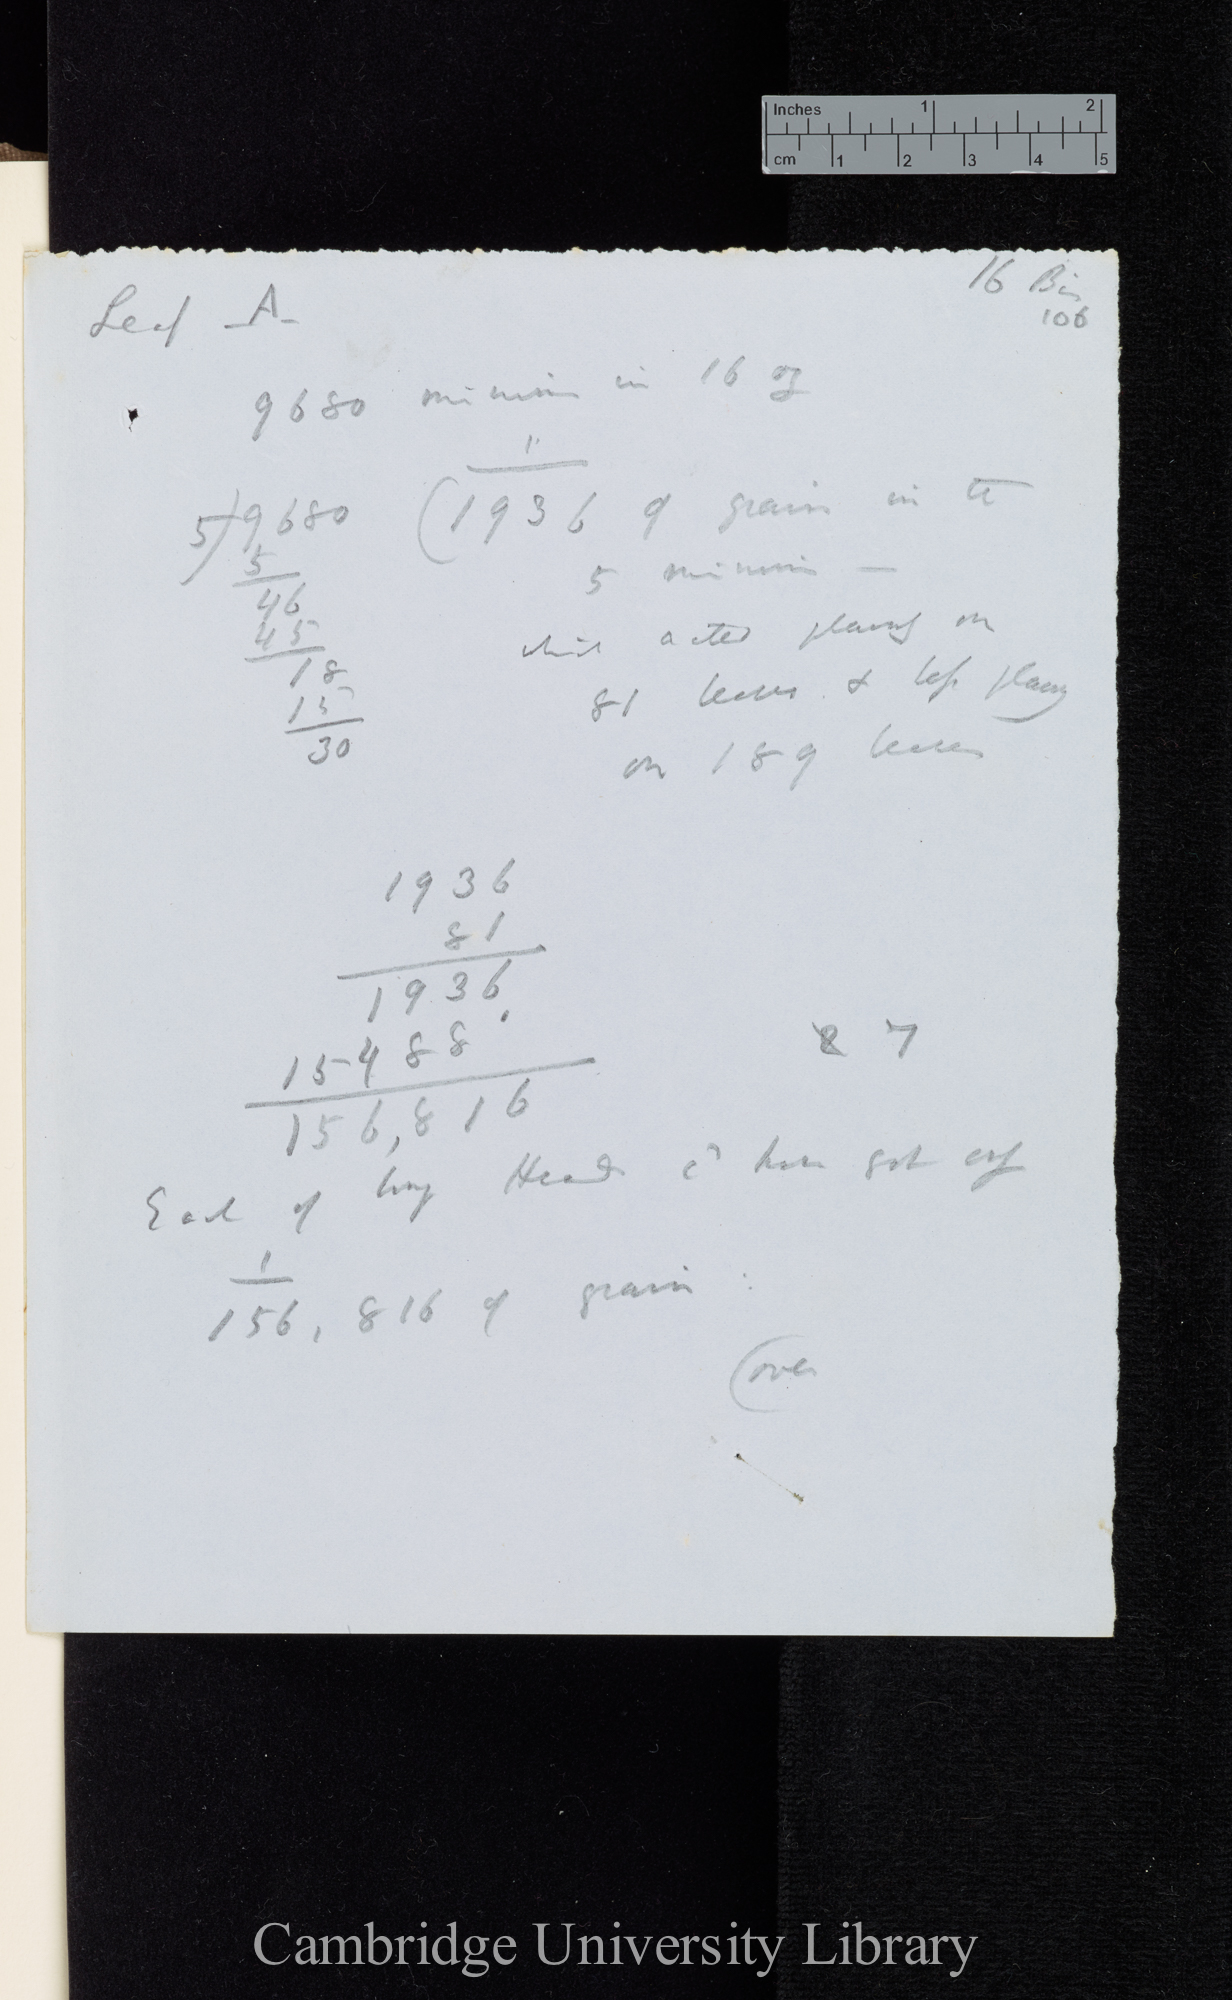 Inches 1 2
cm 1 2 3 4 5
16 Bis
106
Leaf A
9680 minims in 16 oz
1
5)9680 (1936 of grain in the
5
5 minims —
46
45
which acted plainly on
18
81 leaves & less plainly
15
30
on 189 leaves
1936
81
1936
15488
8 7
156,816
Each of long Head cd have got only
1
156,816 of grain :
(over
Cambridge University Library